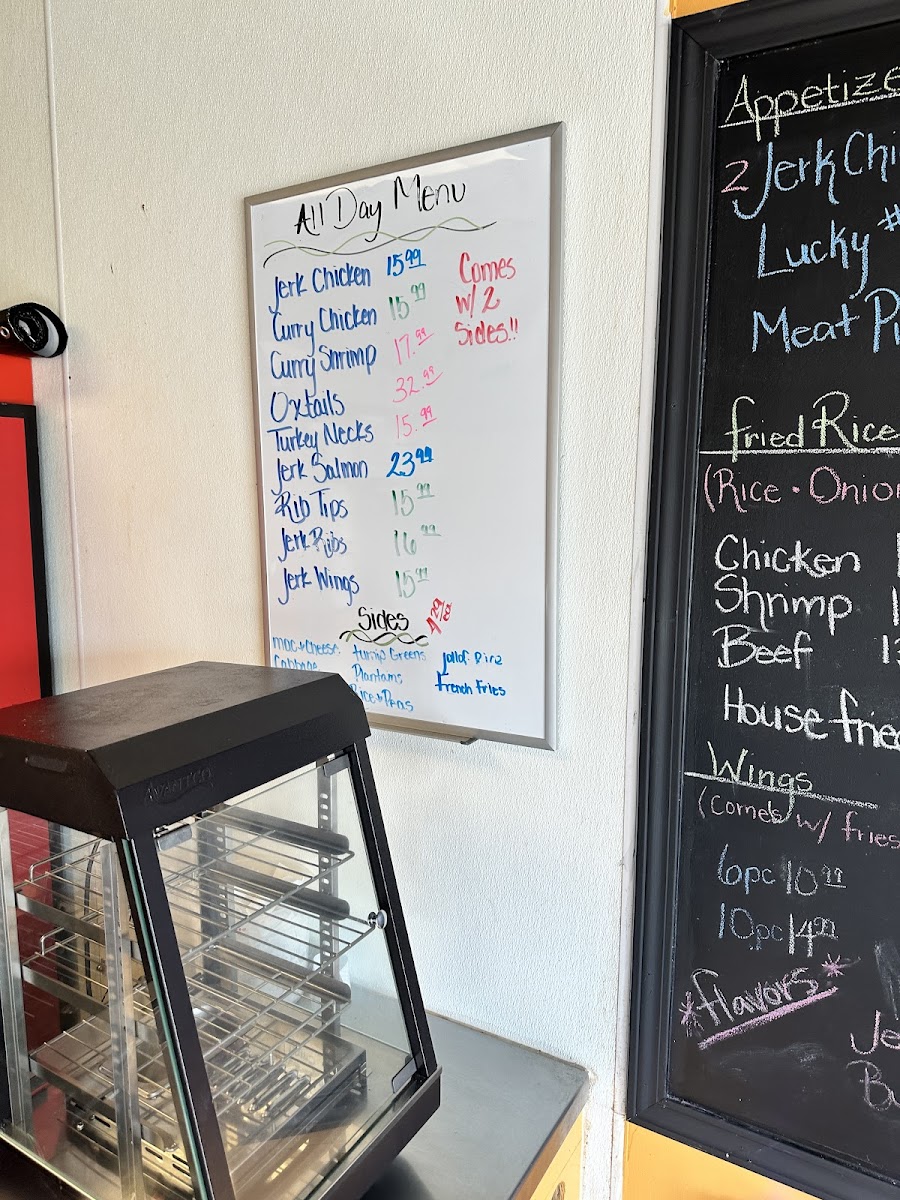 All Day Menu
Jerk Chicken 15.99
Curry Chicken 15.99
Curry Shrimp 17.99
Oxtails 32.99
Turkey Necks 15.99
Jerk Salmon 23.99
Rib Tips 15.99
Jerk Ribs 16.99
Jerk Wings 15.99
Comes
w/ 2
Sides!!
Sides
Mac & Cheese
Cabbage
Turnip Greens
Plantains
Rice & Peas
Jollof Rice
French Fries
AVANTCO
Appetize
2 Jerk Chi
Lucky #
Meat P
Fried Rice
(Rice • Onion
Chicken 1
Shrimp 1
Beef 13
House frie
Wings
(Comes w/ fries
6pc 10.99
10pc 14.99
*flavors*
Je
Bu